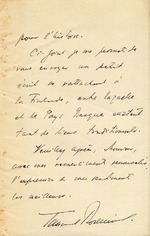 pour l'histoire.
Ci-joint je me permets de
vous envoyer un petit
écrit se rattachant à
la Finlande, entre laquelle
et le Pays Basque existent
tant de liens traditionnels.
Veuillez agréer, Monsieur,
avec mes remerciements renouvelés
l'expression de mes sentiments
les meilleurs.